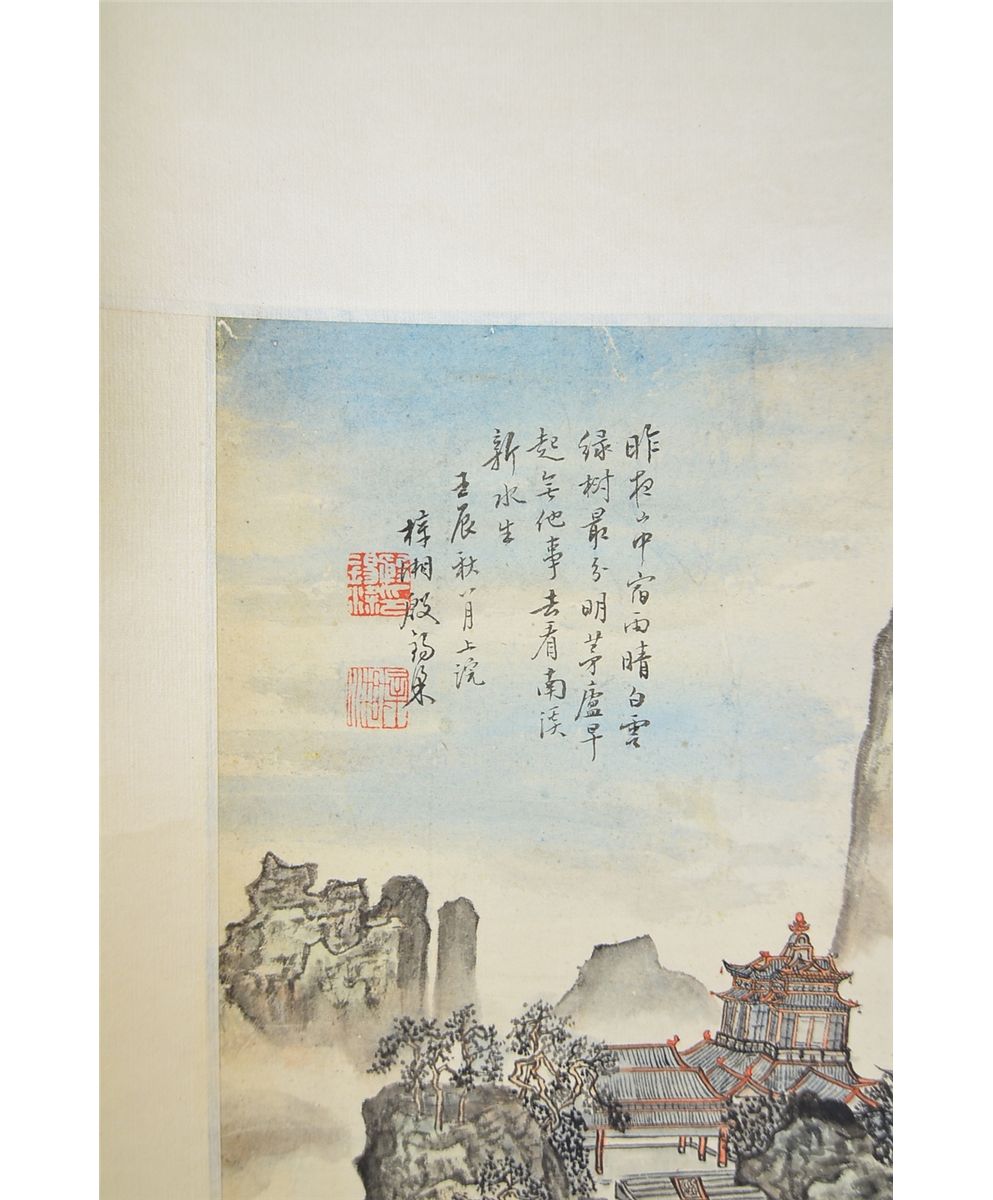 昨夜山中宿雨晴白雲
绿树最分明茅廬早
起無他事去看南溪
新水生
壬辰秏八月上浣
梓湘殷錫梁